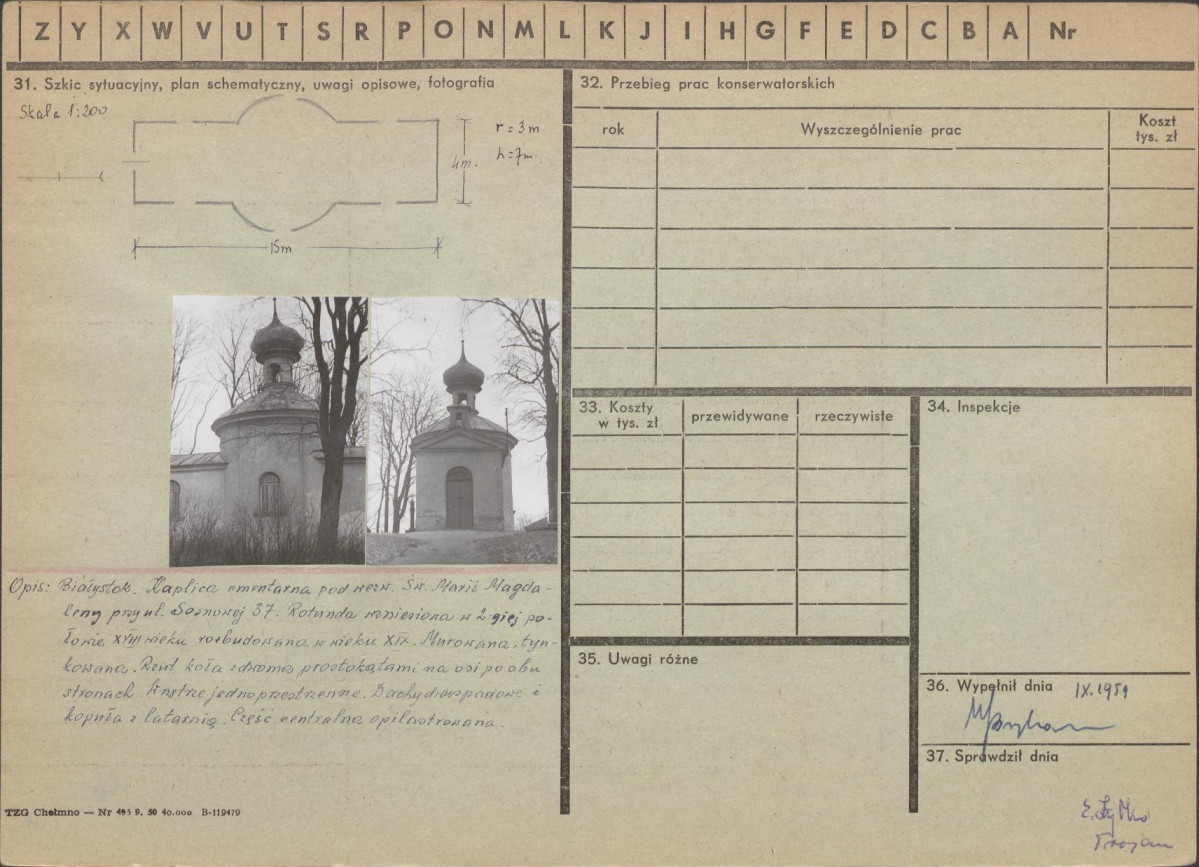 Z Y X W V U T S R P O N M L K J I H G F E D C B A Nr
31. Szkic sytuacyjny, plan schematyczny, uwagi opisowe, fotografia
Skala 1:200
r = 3 m
h = 7 m
4 m.
15 m
Opis: Białystok. Kaplica cmentarna pod wezw. Św. Marii Magda-
leny przy ul. Sosnowej 37. Rotunda wzniesiona w 2-giej po-
łowie XVIII wieku rozbudowana w wieku XIX. Murowana, tyn-
kowana. Rzut koła z dwoma prostokątami na osi po obu
stronach. Wnętrze jednoprzestrzenne. Dachy dwuspadowe i
kopuła z latarnią. Część centralna opilastrowana.
TZG Chełmno — Nr 495 9. 50 40.000 B-119479
32. Przebieg prac konserwatorskich
rok
Wyszczególnienie prac
Koszt
tys. zł
33. Koszty
w tys. zł
przewidywane
rzeczywiste
34. Inspekcje
35. Uwagi różne
36. Wypełnił dnia IX.1959
37. Sprawdził dnia
Trojan